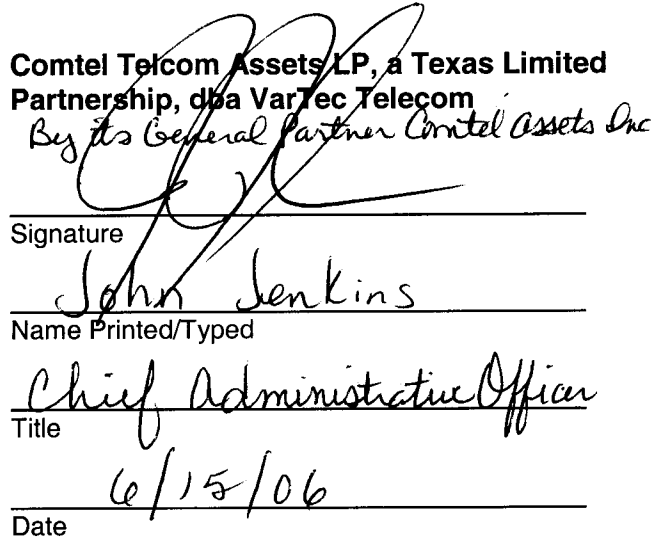 Comtel Telcom Assets LP, a Texas Limited
Partnership, dba VarTec Telecom
By its General Partner Comtel Assets Inc
Signature
John Jenkins
Name Printed/Typed
Chief Administrative Officer
Title
6/15/06
Date